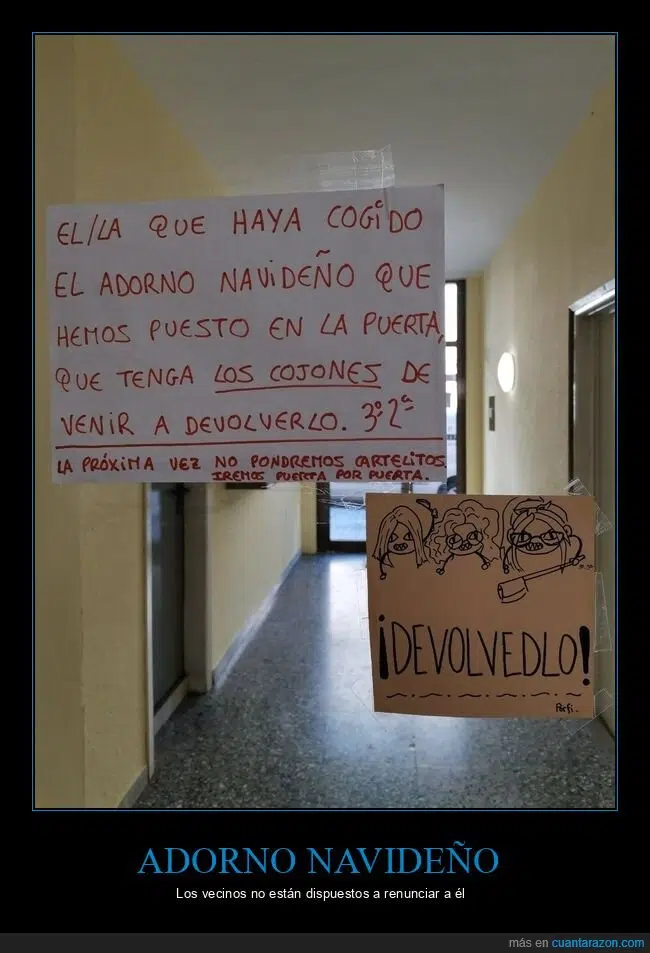 EL/LA QUE HAYA COGIDO
EL ADORNO NAVIDEÑO QUE
HEMOS PUESTO EN LA PUERTA,
QUE TENGA LOS COJONES DE
VENIR A DEVOLVERLO. 3º 2ª
LA PRÓXIMA VEZ NO PONDREMOS CARTELITOS.
IREMOS PUERTA POR PUERTA.
¡DEVOLVEDLO!
Porfi.
ADORNO NAVIDEÑO
Los vecinos no están dispuestos a renunciar a él
más en cuantarazon.com